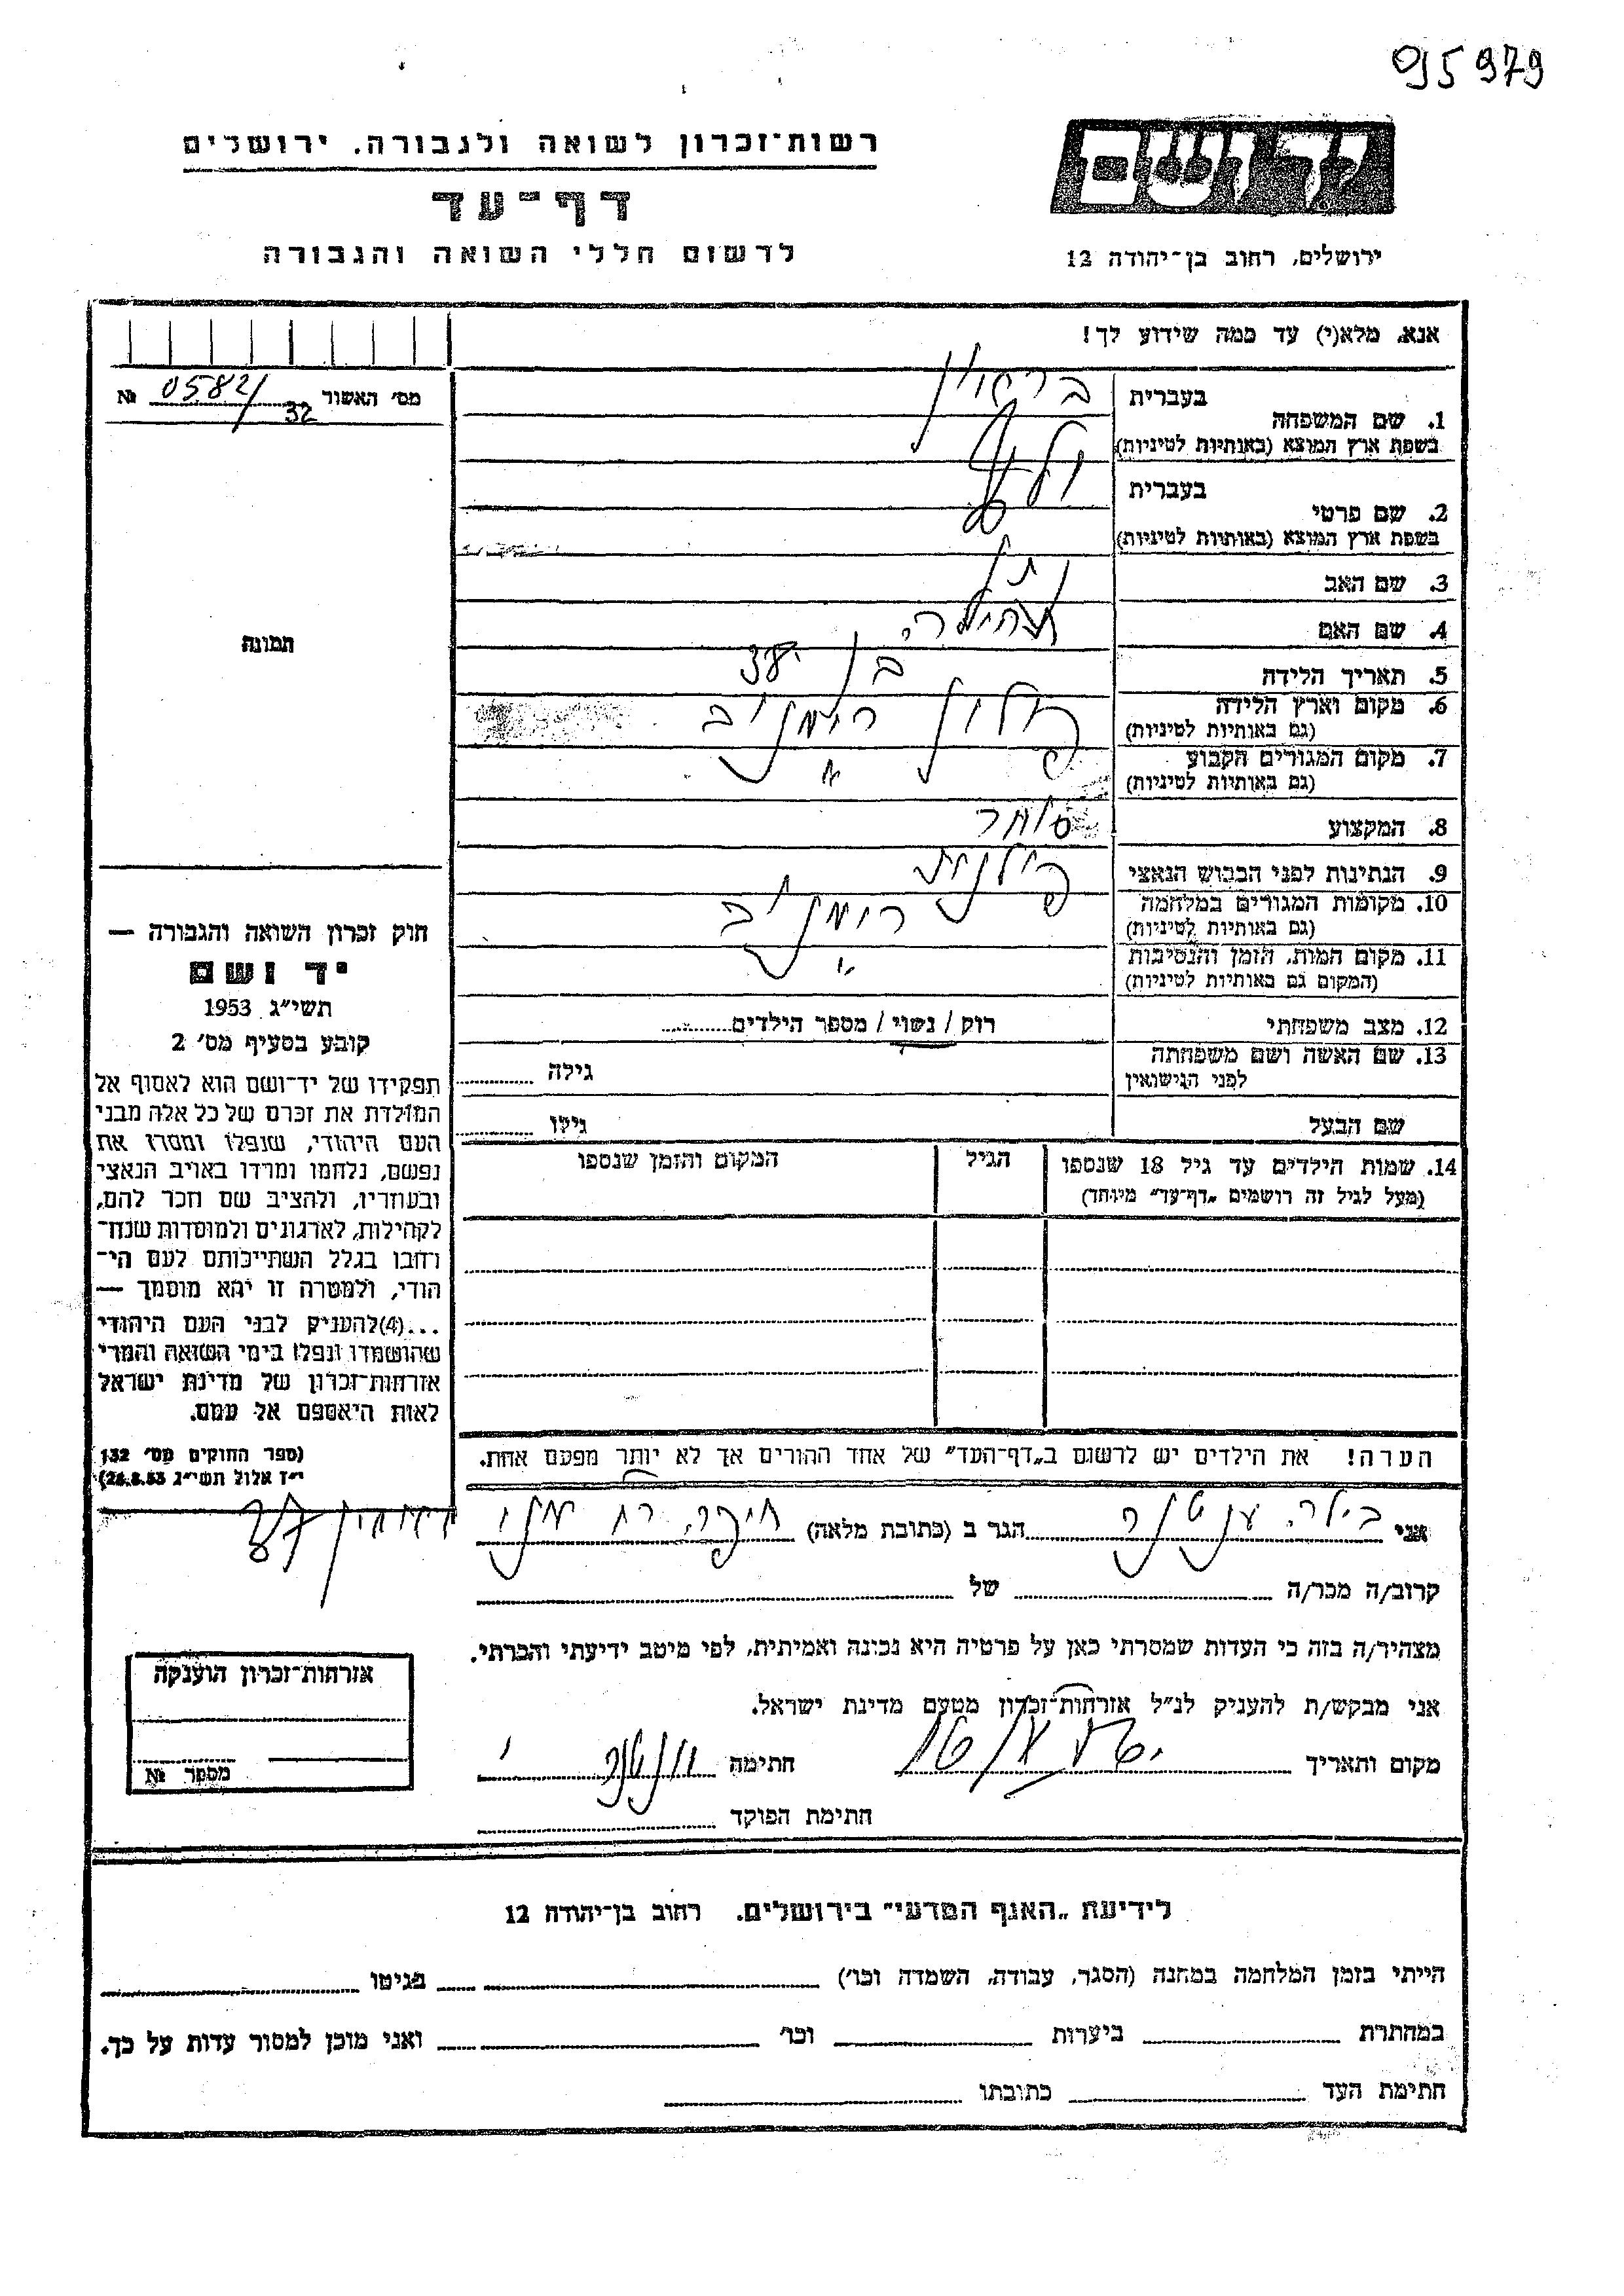 95979
יד ושם
רשות־זכרון לשואה ולגבורה, ירושלים
דף־עד
לרשום חללי השואה והגבורה
ירושלים, רחוב בן־יהודה 12
אנא, מלא(י) עד כמה שידוע לך!
מס' האשור 0582/32 №
1. שם המשפחה
בעברית
בשפת ארץ המוצא (באותיות לטיניות)
2. שם פרטי
בעברית
בשפת ארץ המוצא (באותיות לטיניות)
3. שם האב
4. שם האם
5. תאריך הלידה בן
6. מקום וארץ הלידה פולין רימנוב
(גם באותיות לטיניות)
7. מקום המגורים הקבוע
(גם באותיות לטיניות)
8. המקצוע סוחר
9. הנתינות לפני הכבוש הנאצי פולנית
10. מקומות המגורים במלחמה רימנוב
(גם באותיות לטיניות)
11. מקום המות, הזמן והנסיבות
(המקום גם באותיות לטיניות)
12. מצב משפחתי רוק / נשוי / מספר הילדים
13. שם האשה ושם משפחתה
לפני הנישואין
גילה
שם הבעל גילו
14. שמות הילדים עד גיל 18 שנספו
(מעל לגיל זה רושמים „דף־עד" מיוחד)
הגיל
המקום והזמן שנספו
הערה! את הילדים יש לרשום ב„דף־העד" של אחד ההורים אך לא יותר מפעם אחת.
תמונה
חוק זכרון השואה והגבורה —
יד ושם
תשי"ג 1953
קובע בסעיף מס' 2
תפקידו של יד־ושם הוא לאסוף אל
המולדת את זכרם של כל אלה מבני
העם היהודי, שנפלו ומסרו את
נפשם, נלחמו ומרדו באויב הנאצי
ובעוזריו, ולהציב שם וזכר להם,
לקהילות, לארגונים ולמוסדות שנח־
רובו בגלל השתייכותם לעם הי־
הודי, ולמטרה זו יהא מוסמך —
...(4) להעניק לבני העם היהודי
שהושמדו ונפלו בימי השואה והמרי
אזרחות־זכרון של מדינת ישראל
לאות היאספם אל עמם.
(ספר החוקים מס' 132
י"ז אלול תשי"ג 28.8.53)
אני הגר ב (כתובת מלאה) חיפה
קרוב/ה מכר/ה של
מצהיר/ה בזה כי העדות שמסרתי כאן על פרטיה היא נכונה ואמיתית, לפי מיטב ידיעתי והכרתי.
אני מבקש/ת להעניק לנ"ל אזרחות־זכרון מטעם מדינת ישראל.
מקום ותאריך חתימה
חתימת הפוקד
אזרחות־זכרון הוענקה
מספר №
לידיעת „האגף המדעי" בירושלים, רחוב בן־יהודה 12
הייתי בזמן המלחמה במחנה (הסגר, עבודה, השמדה וכו') בגיטו
במחתרת ביערות וכו' ואני מוכן למסור עדות על כך.
חתימת העד כתובתו